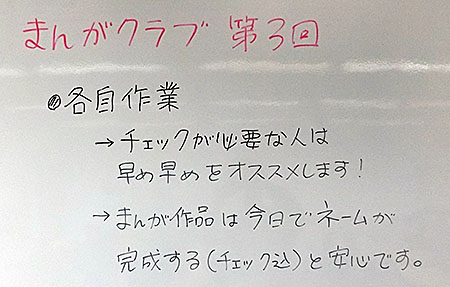 まんがクラブ 第3回
◎各自作業
→チェックが必要な人は
早め早めをオススメします!
→まんが作品は今日でネームが
完成する(チェック込)と安心です。